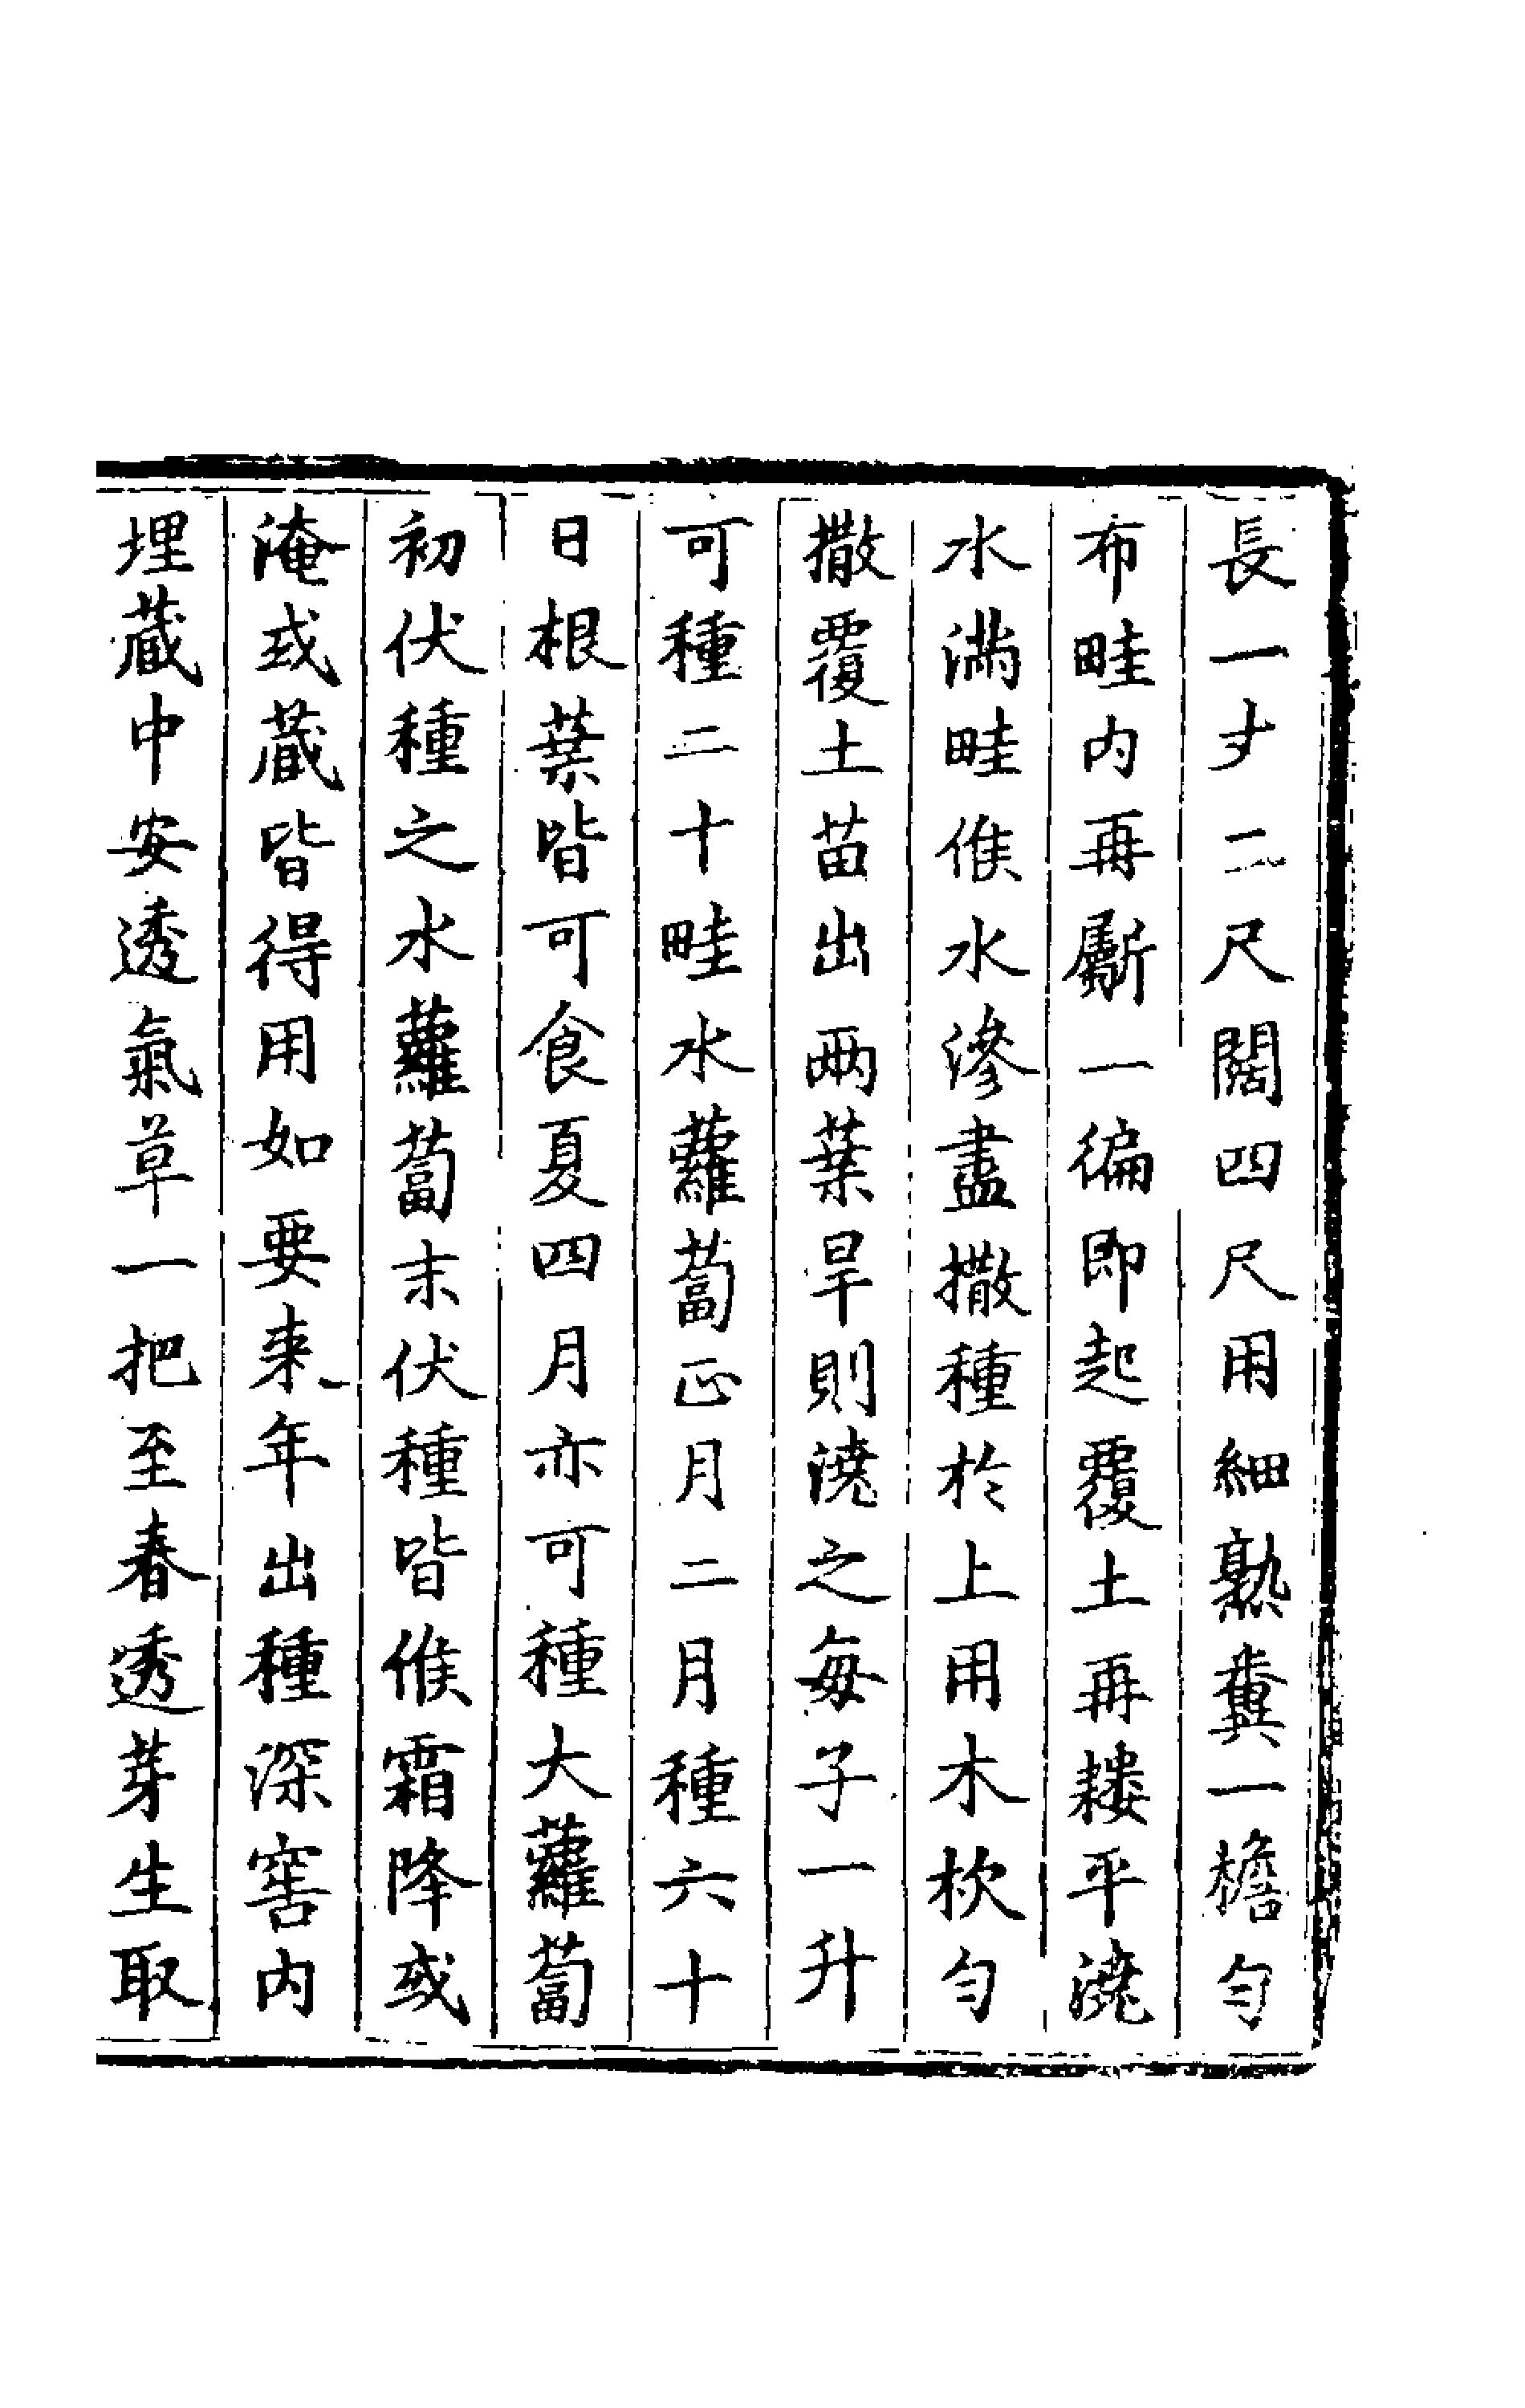 長一丈二尺闊四尺用細熟糞一檐勻
布畦内再斸一徧即起覆土再耬平澆
水滿畦俟水滲盡撒種於上用木杴勻
撒覆土苗出兩葉旱則澆之每子一升
可種二十畦水蘿蔔正月二月種六十
日根葉皆可食夏四月亦可種大蘿蔔
初伏種之水蘿蔔末伏種皆候霜降或
淹或藏皆得用如要来年出種深窖内
埋藏中安透氣草一把至春透芽生取